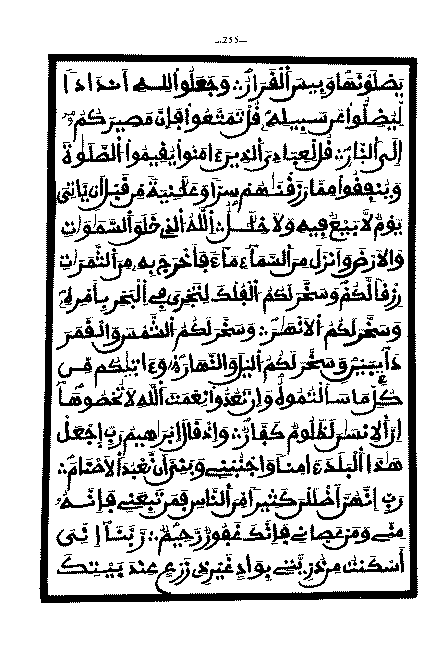 —255—
يَصْلَوْنَهَا وَبِيسَ ٱلْقَرَارُ ∴ وَجَعَلُواْ لِلهِ أَندَاداٗ
لِّيُضِلُّواْ عَن سَبِيلِهِۦ قُلْ تَمَتَّعُواْ فَإِنَّ مَصِيرَكُمُۥ
إِلَى ٱلنَّارِ ∴ قُل لِّعِبَادِيَ ٱلذِينَ ءَامَنُواْ يُقِيمُواْ ٱلصَّلَوٰةَ
وَيُنفِقُواْ مِمَّا رَزَقْنَٰهُمْ سِرّاٗ وَعَلَٰنِيَةٗ مِّن قَبْلِ أَن يَّاتِيَ
يَوْمٞ لَّا بَيْعٞ فِيهِ وَلَا خِلَٰلٌ ∴ ٱللَّهُ ٱلذِي خَلَقَ ٱلسَّمَٰوَٰتِ
وَالَارْضَ وَأَنزَلَ مِنَ ٱلسَّمَآءِ مَآءٗ فَأَخْرَجَ بِهِۦ مِنَ ٱلثَّمَرَٰتِ
رِزْقاٗ لَّكُمْ وَسَخَّرَ لَكُمُ ٱلْفُلْكَ لِتَجْرِيَ فِي ٱلْبَحْرِ بِأَمْرِهِۦ
وَسَخَّرَ لَكُمُ ٱلَانْهَٰرَ ∴ وَسَخَّرَ لَكُمُ ٱلشَّمْسَ وَالْقَمَرَ
دَآئِبَيْنِ وَسَخَّرَ لَكُمُ ٱليْلَ وَالنَّهَارَ ∴ وَءَاتَيٰكُم مِّن
كُلِّ مَا سَأَلْتُمُوهُ وَإِن تَعُدُّواْ نِعْمَتَ ٱللَّهِ لَا تُحْصُوهَآ
إِنَّ ٱلِانسَٰنَ لَظَلُومٞ كَفَّارٞ ∴ وَإِذْ قَالَ إِبْرَٰهِيمُ رَبِّ ٱجْعَلْ
هَٰذَا ٱلْبَلَدَ ءَامِناٗ وَاجْنُبْنِي وَبَنِيَّ أَن نَّعْبُدَ ٱلَاصْنَامَ ∴
رَبِّ إِنَّهُنَّ أَضْلَلْنَ كَثِيراٗ مِّنَ ٱلنَّاسِ فَمَن تَبِعَنِي فَإِنَّهُۥ
مِنِّي وَمَنْ عَصَانِي فَإِنَّكَ غَفُورٞ رَّحِيمٞ ∴ رَّبَّنَآ إِنِّيَ
أَسْكَنتُ مِن ذُرِّيَّتِي بِوَادٍ غَيْرِ ذِي زَرْعٍ عِندَ بَيْتِكَ